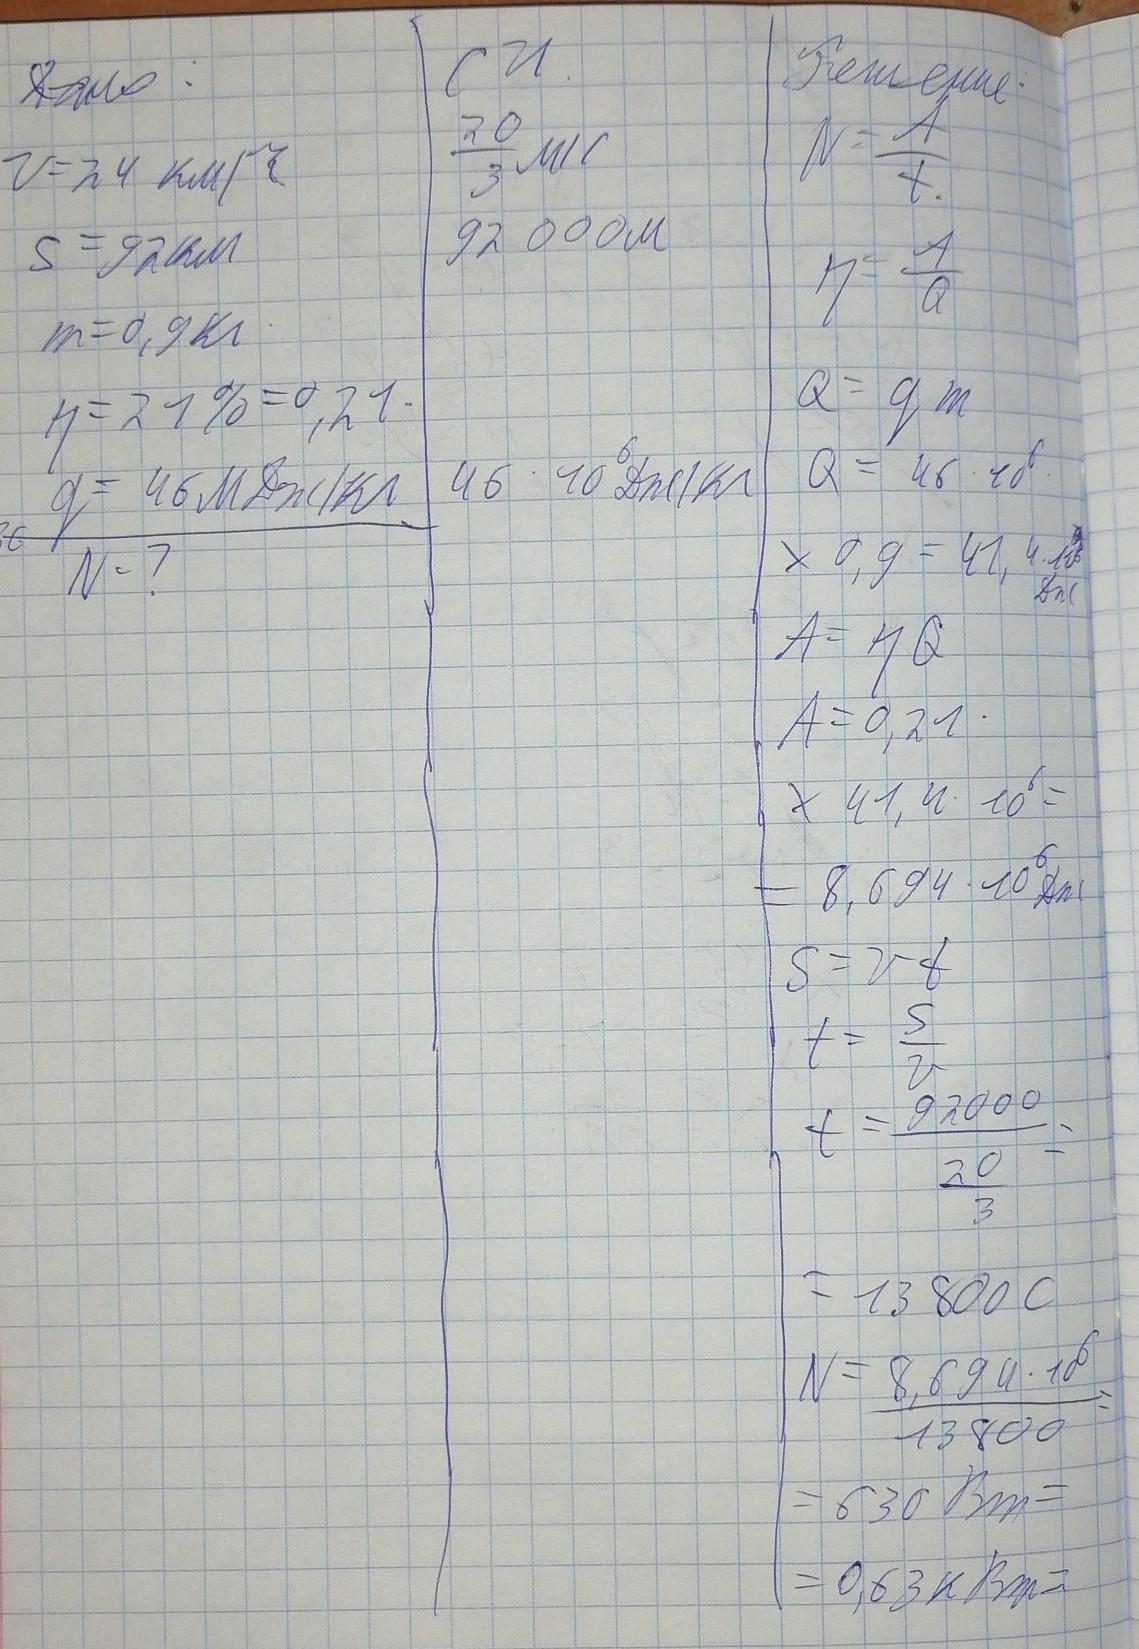 Дано:
v=24 км/ч
s=92км
m=0,9кг
η=21%=0,21.
q=46МДж/кг
N-?
СИ.
20/3 м/с
92 000м
46·10⁶Дж/кг
Решение:
N=A/t.
η=A/Q
Q=qm
Q=46·10⁶·
×0,9=41,4·10⁶
Дж
A=ηQ
A=0,21·
×41,4·10⁶=
=8,694·10⁶Дж
S=vt
t=S/v
t=92000/(20/3)=
=13800с
N=8,694·10⁶/13800=
=630Вт=
=0,63кВт=